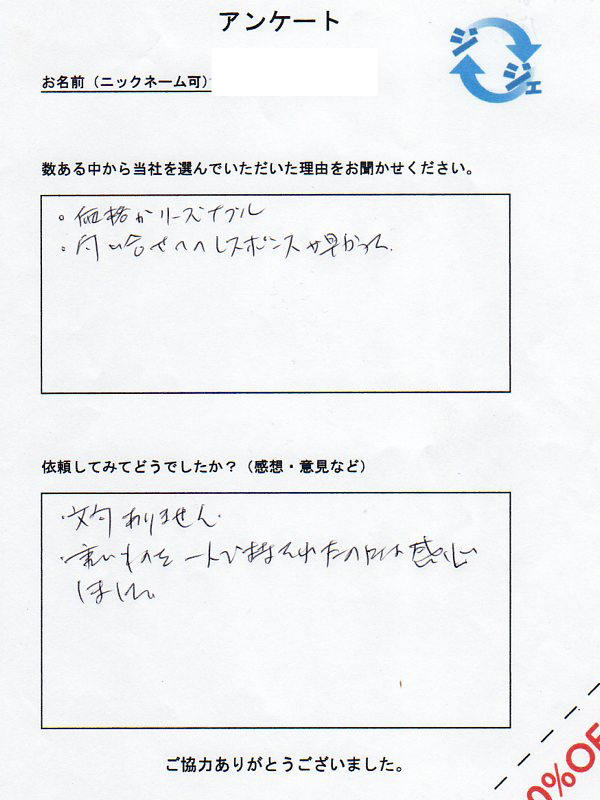 アンケート
ジ
ジェ
お名前（ニックネーム可）
数ある中から当社を選んでいただいた理由をお聞かせください。
。価格がリーズナブル
・問い合せへのレスポンスが早かった。
依頼してみてどうでしたか？（感想・意見など）
・文句ありません。
・重いものを一人で持たれたのには感心
しました。
ご協力ありがとうございました。
0%OF